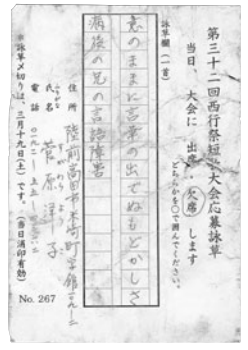 第三十二回西行祭短歌大会応募詠草
当日、大会に 出席・欠席 します
どちらかを○で囲んでください。
詠草欄(一首)
意のままに言葉の出でぬもどかしさ
病後の兄の言語障害
住所 陸前高田市米崎町字館
ふりがな すがわら
氏名 菅原 子
電話
※詠草〆切りは、三月十九日(土)です。(当日消印有効)
No. 267